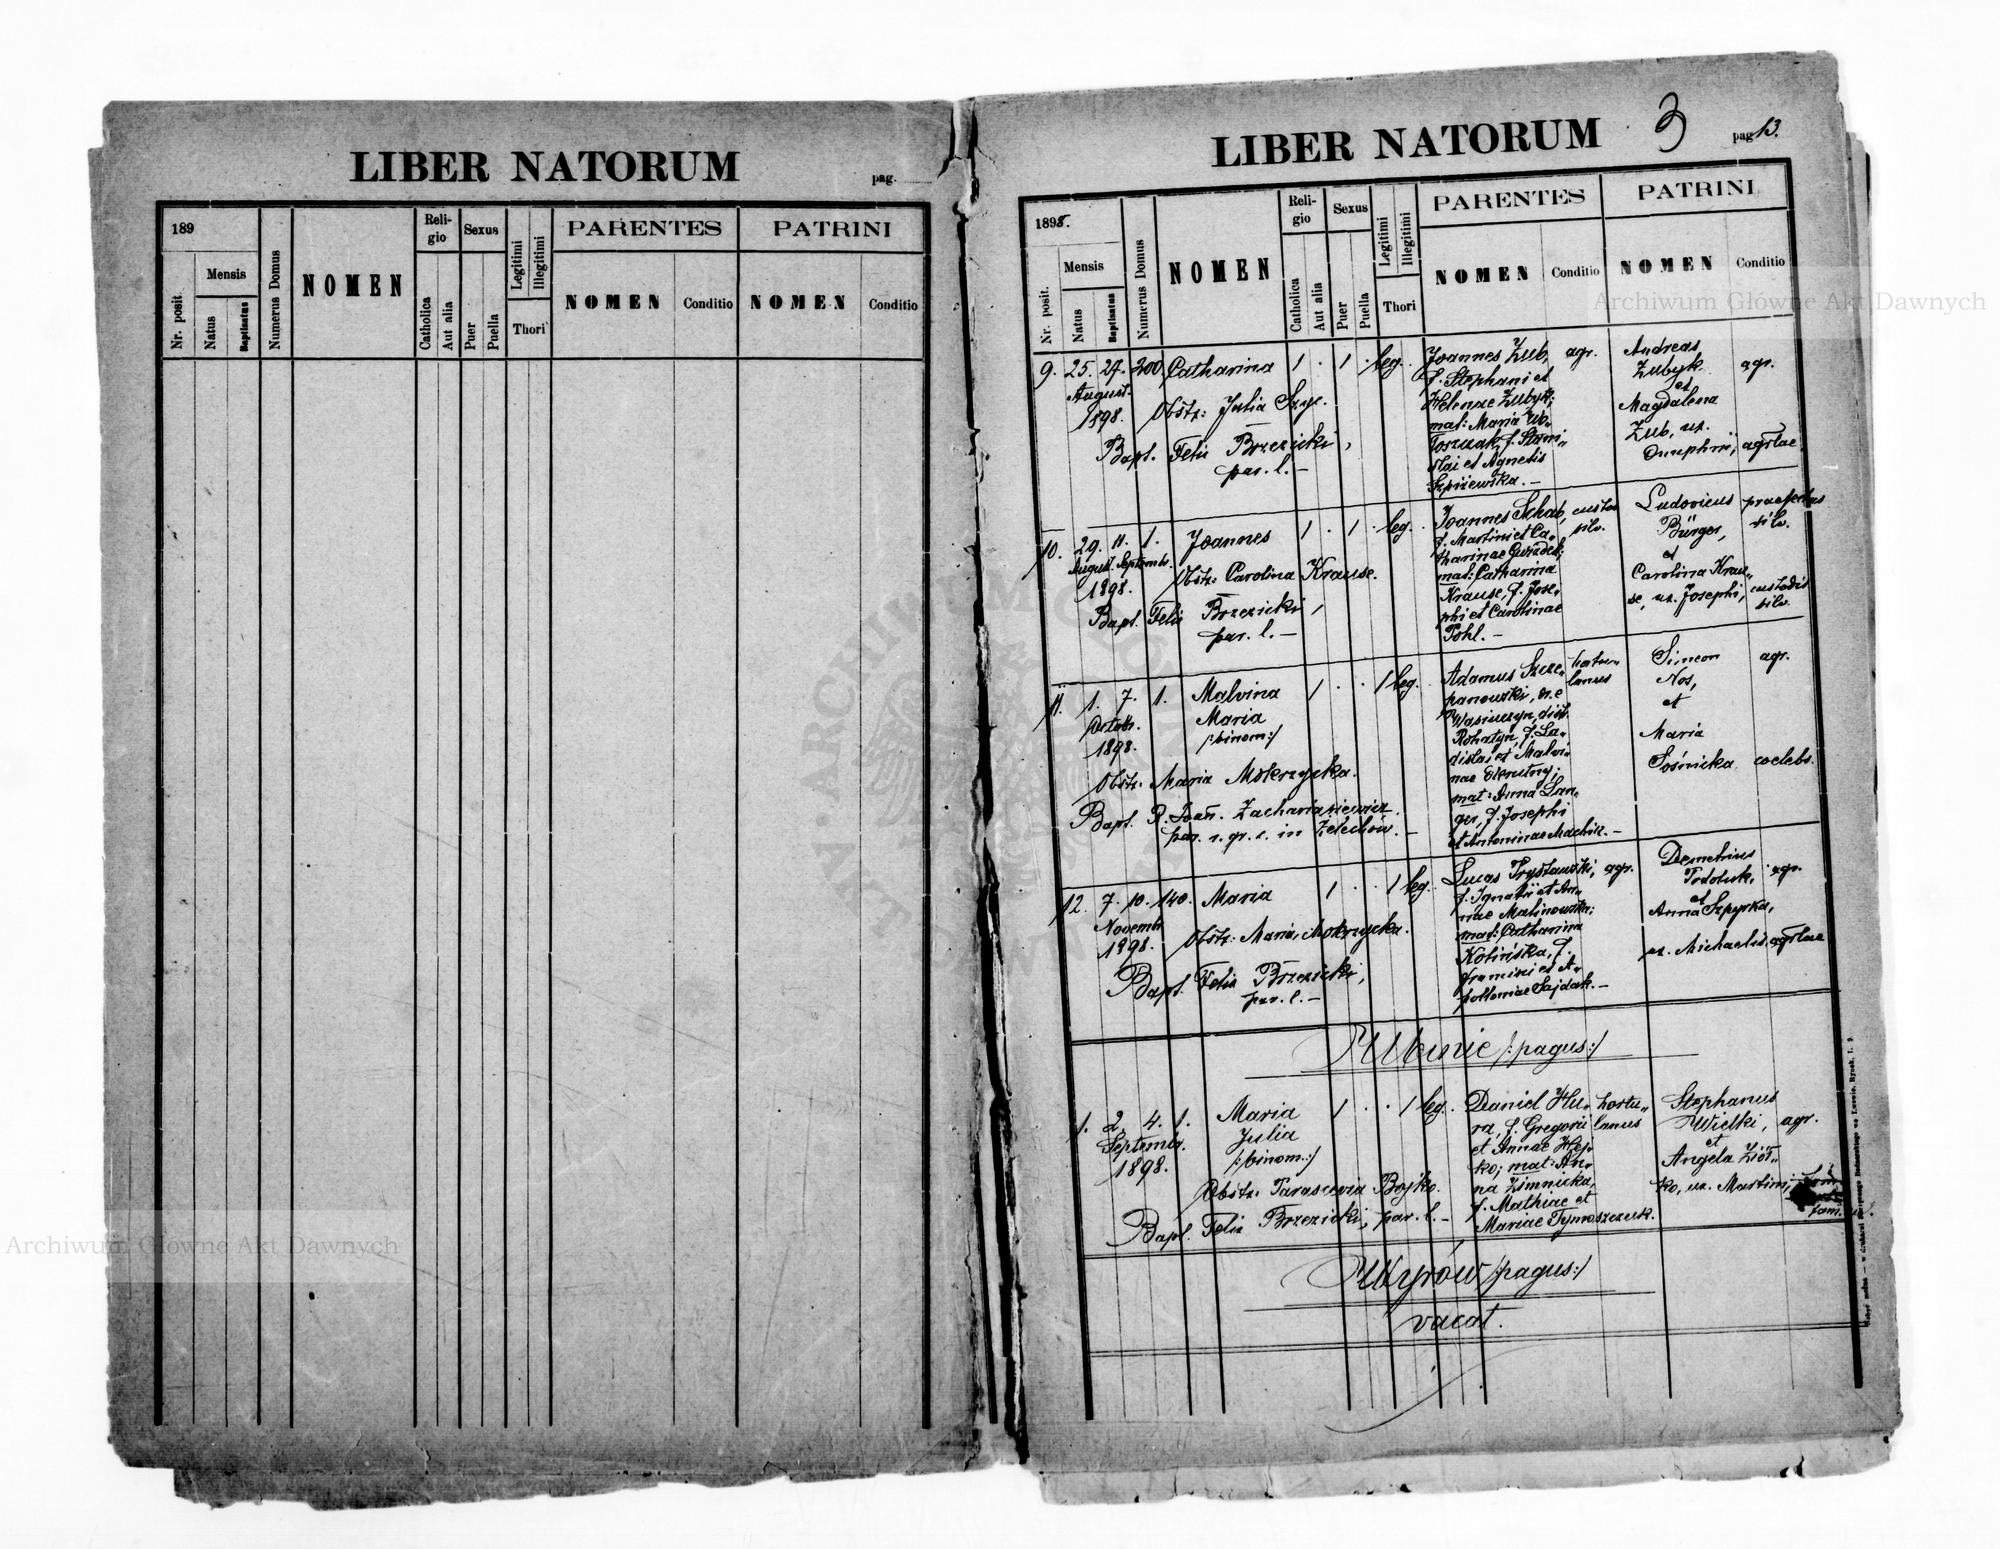 LIBER NATORUM
pag.
189
Nr. posit.
Mensis
Natus
Baptisatus
Numerus Domus
NOMEN
Reli-
gio
Catholica
Aut alia
Sexus
Puer
Puella
Legitimi
Illegitimi
Thori
PARENTES
NOMEN
Conditio
PATRINI
NOMEN
Conditio
Archiwum Główne Akt Dawnych
LIBER NATORUM
3
pag. 13.
1898.
Nr. posit.
Mensis
Natus
Baptisatus
Numerus Domus
NOMEN
Reli-
gio
Catholica
Aut alia
Sexus
Puer
Puella
Legitimi
Illegitimi
Thori
PARENTES
NOMEN
Conditio
PATRINI
NOMEN
Conditio
Archiwum Główne Akt Dawnych
9. 25. 27. 200. Catharina 1 . 1 . leg.
August.
1898.
Obstr: Julia
Bapt. Felix Brzezicki,
par. l. –
Joannes Zub, agr.
f. Stephani et
Helenae Zubyk;
mat: Maria
f. Stani-
slai et Agnetis
Szpiżewska. –
Andreas
Zubyk agr.
et
Magdalena
Zub, ux.
Onuphrii, agrlae
10. 29. 11. 1. Joannes 1 . 1 . leg.
August. Septembr.
1898.
Obstr: Carolina Krause.
Bapt. Felix Brzezicki,
par. l. –
Joannes Schab, custos
silv.
f. Martini et Ca-
tharinae
mat: Catharina
Krause, f. Jose-
phi et Carolinae
Pohl. –
Ludovicus praefectus
Bürger, silv.
et
Carolina Krau-
se, ux. Josephi, custodis
silv.
11. 1. 7. 1. Malvina 1 . . 1 leg.
Maria
/:binom:/
Octobr.
1898.
Obstr: Maria Mokrzycka.
Bapt. R. Joan. Zachariasiewicz
par. r. gr. c. in Żelechów. –
Adamus Szcze- hortu-
lanus
panowski, n. e
Wasiuczyn, dist.
Rohatyn, f. La-
dislai et Malvi-
nae
mat: Anna Lan-
ger, f. Josephi
et Antoninae
Simeon agr.
Nos,
et
Maria
Sośnicka coelebs.
12. 7. 10. 140. Maria 1 . . 1 leg.
Novembr.
1898.
Obstr: Maria Mokrzycka.
Bapt. Felix Brzezicki,
par. l. –
Lucas Trysławski, agr.
f. Ignatii et An-
nae Malinowska;
mat: Catharina
Kotińska, f.
et A-
polloniae Sajdak. –
Demetrius
agr.
et
Anna Szpyrka,
ux. Michaelis agrlae
/:pagus:/
1. 2. 4. 1. Maria 1 . . 1 leg.
Julia
/:binom:/
Septembr.
1898.
Obstr: Parascevia Bojko.
Bapt. Felix Brzezicki, par. l. –
Daniel Hu- hortu-
ra, f. Gregorii lanus
et Annae Hej-
ko; mat: An-
na Zimnicka,
f. Mathiae et
Mariae Tymoszczuk.
Stephanus
Wielki, agr.
et
Angela Ziół-
ko, ux. Martini,
fam.
Wyrów /:pagus:/
vacat.